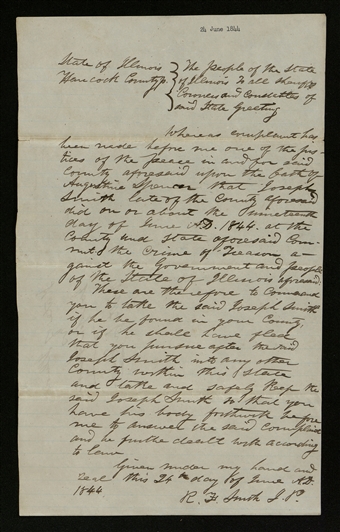 24 June 1844
State of Illinois } The People of the State
Hancock County } of Illinois To all Sheriffs
Coroners and Constables of
said State Greeting
Whereas complaint has
been made before me one of the jus-
tices of the peace in and for said
County aforesaid upon the oath of
Augustine Spencer that Joseph
Smith late of the County aforesaid
did on or about the Nineteenth
day of June A.D. 1844. at the
County and State aforesaid Com-
mit the Crime of Treason a-
gainst the Government and People
of the State of Illinois aforesaid
These are therefore to Command
you to take the said Joseph Smith
if he be found in your County
or if he shall have fled
that you pursue after the said
Joseph Smith into any other
County within this State
and take and safely keep the
said Joseph Smith so that you
have his body forthwith before
me to answer the said Complaint
and be further dealt with according
to law
Given under my hand and
seal this 24th day of June AD
1844
R. F. Smith J.P.